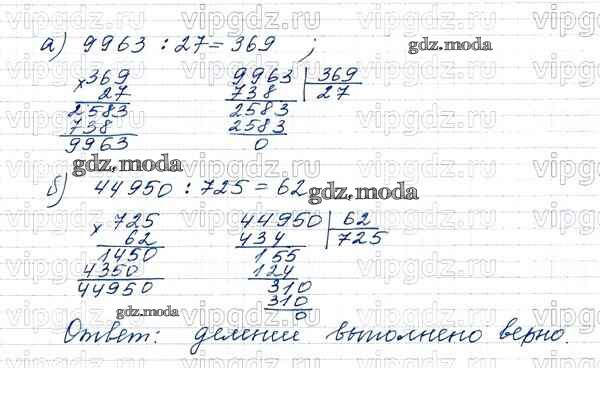 а) 9963 : 27 = 369 ;
gdz.moda
× 369 9963 | 369
27 738 27
2583 2583
738 2583
9963 0
gdz.moda
б) 44950 : 725 = 62
gdz.moda
× 725 44950 | 62
62 434 725
1450 155
4350 124
44950 310
310
0
gdz.moda
Ответ: деление выполнено верно.
vipgdz.ru